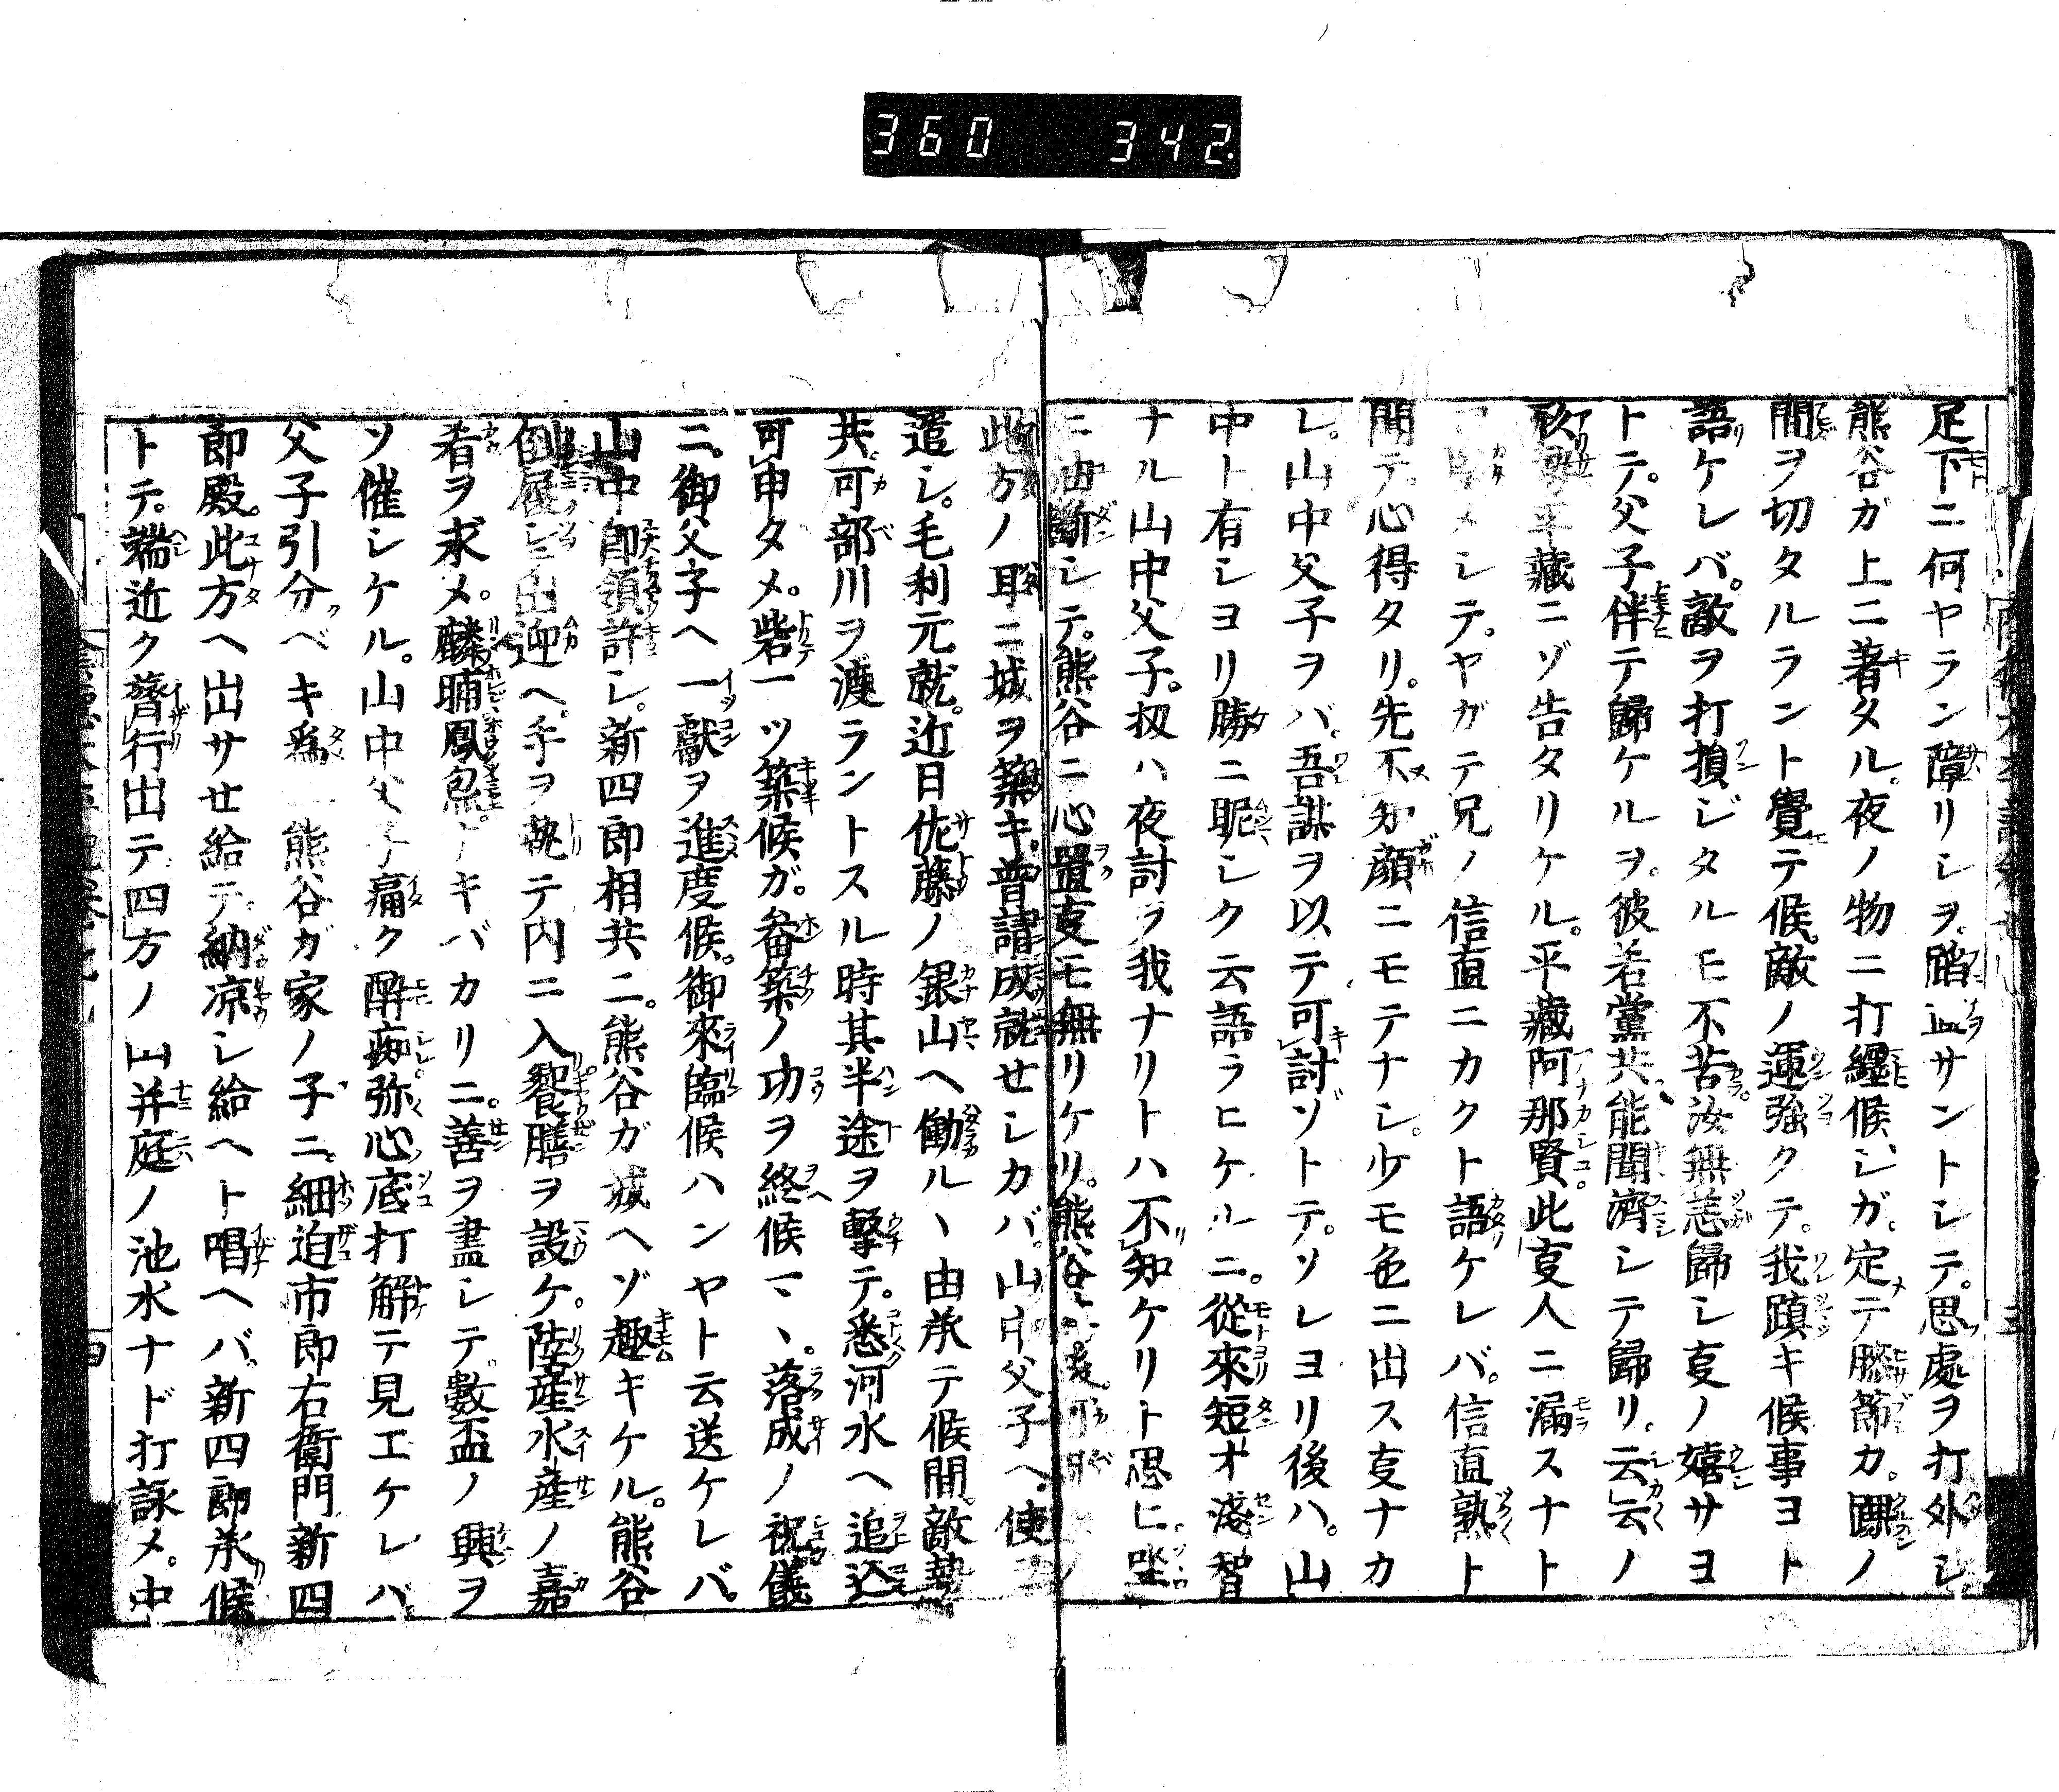 360 342.
足下ニ何ヤラン障リシヲ踏直サントシテ。思處ヲ打外シ
熊谷ガ上ニ著タル。夜ノ物ニ打纏候シガ。定テ膝節カ。ノ
間ヲ切タルラント覺テ候。敵ノ運強クテ。我躓キ候事ヨト
語ケレバ。敵ヲ打損ジタルモ不苦汝無恙歸シ㕝ノ嬉サヨ
トテ。父子伴テ歸ケルヲ。彼若黨共能聞濟シテ歸リ。云云ノ
平藏ニゾ告タリケル。平藏阿那賢。此㕝人ニ漏スナト
メシテ。ヤガテ兄ノ信直ニカクト語ケレバ。信直熟ト
聞テ。心得タリ。先不知顔ニモテナシ。少モ色ニ出ス㕝ナカ
レ。山中父子ヲバ。吾謀ヲ以テ可討ゾトテ。ソレヨリ後ハ。山
中ト有シヨリ勝ニ昵シク云語ラヒケルニ。從來短才淺智
ナル山中父子。扨ハ夜討ヲ我ナリトハ不知ケリト思ヒ。
ニ油斷シテ。熊谷ニ心置㕝モ無リケリ。熊谷
此方ノ城ヲ築キ。普請成就セシカバ。山中父子ヘ。使
遣シ。毛利元就。近日佐藤ノ銀山ヘ働ル丶由承テ候間。敵勢
共。可部川ヲ渡ラントスル時其半途ヲ擊テ。悉河水ヘ追込
可申タメ。砦一ツ築候ガ。畚築ノ功ヲ終候マヽ。落成ノ祝儀
ニ。御父子ヘ一獻ヲ進度候。御來臨候ハンヤト云送ケレバ。
山中即領許シ。新四郎相共ニ。熊谷ガ城ヘゾ趣キケル。熊谷
倒屣シ出迎ヘ。手ヲ執テ内ニ入饗膳ヲ設ケ。陸産水産ノ嘉
肴ヲ求メ。麟脯鳳炰トキバカリニ。善ヲ盡シテ。數盃ノ興ヲ
ソ催シケル。山中父子痛ク酔痴弥心底打解テ見エケレバ。
父子引分ベキ爲熊谷ガ家ノ子ニ。細迫市郎右衛門新四
郎殿。此方ヘ出サセ給テ。納凉シ給ヘト唱ヘバ。新四郎承候
トテ。端近ク齊行出テ四方ノ山并庭ノ池水ナド打詠メ。中